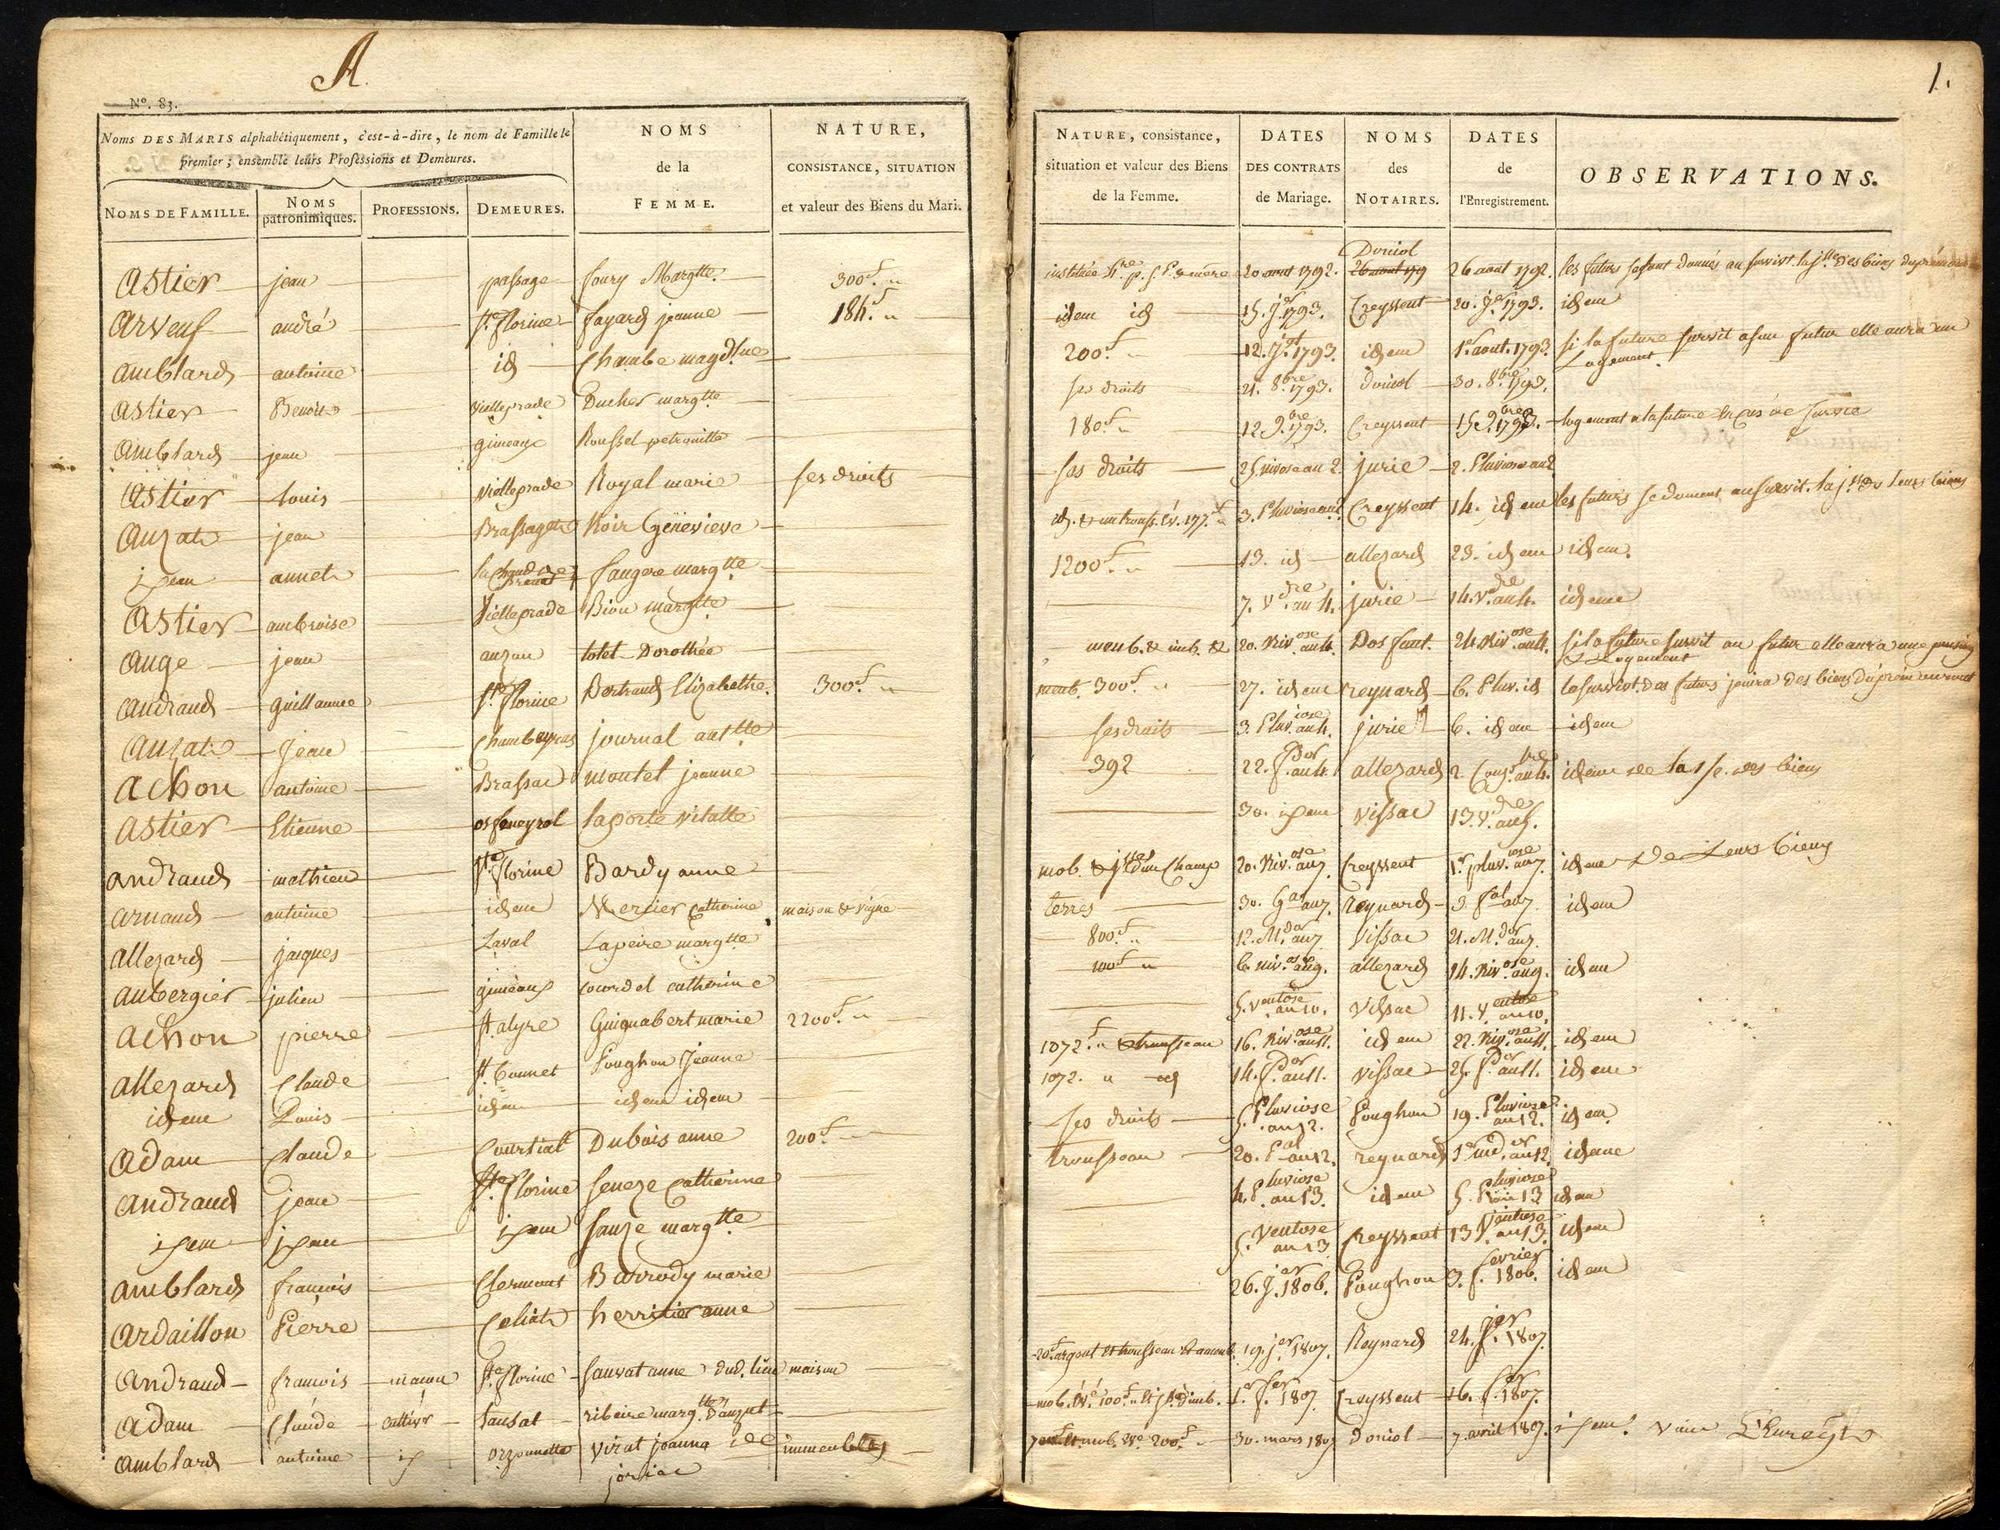 A
1.
N°. 83.
NOMS DES MARIS alphabétiquement, c'est-à-dire, le nom de Famille le
premier; ensemble leurs Professions et Demeures.
NOMS DE FAMILLE. NOMS patronimiques. PROFESSIONS. DEMEURES.
NOMS de la FEMME.
NATURE, CONSISTANCE, SITUATION et valeur des Biens du Mari.
NATURE, consistance, situation et valeur des Biens de la Femme.
DATES DES CONTRATS de Mariage.
NOMS des NOTAIRES.
DATES de l'Enregistrement.
OBSERVATIONS.
astier jean passage foury Margtte 300f " 20 aout 1792. Doniol 26 aout 179 26 aout 1792.
arveuf andré Ste florine fayard jeanne 184f " idem id 15. Jer 1793. Creyssent 20. Jer 1793. idem
amblard antoine id Chambe magdlne 200f " 12. Jet 1793. idem 1er aout. 1793. si la future survit a son futur elle aura un
Logement.
astier Benoit vielleprade Ducher margtte ses droits 21. 8bre 1793. doniol 30. 8bre 1793.
amblard jean gimeaux Roussel petronille 180f " 12. 9bre 1793. Creyssent 15. 9bre 1793. logement a la future
astier louis vielleprade Royal marie ses droits ses droits 25 nivose an 2. jurie 2. Pluviose an 2
auzat jean Brassaget Noir Geneviève 3. Pluviose an 2. Creyssent 14. idem les futurs se donnent au survivt. la jssce de leurs biens
idem annet faugere margtte 1200f " 13. id allezard 23. idem idem.
astier ambroise vielleprade Biou margtte 7. vdre an 4. jurie 14. vdre an 4. idem
auge jean auzon tolet Dorothée meub. & imb. & 20. Nivose an 4. Dosfant. 24. Nivose an 4. si la future survit au futur elle aura une pension
& Logement
andraud guillaume Ste florine Bertrand Elizabethe. 300f " meub. 300f " 27. idem reynard 6. Pluv. id le survivt. des futurs jouira des biens du prémourant
auzat Jean Chambeyras journal anttte ses droits 3. Pluviose an 4. jurie 6. idem idem
achon antoine Brassac moutel jeanne 392 22. fdor an 4. allezard 2. Compre an 4. idem de la 1/2 des biens
astier Etienne laporte vitalle 30. idem vissac 13. vdre an 5.
andraud mathieu Ste florine Bardy anne mob. & jsse d'un Champ 20. Nivose an 7. Creyssent 1er pluviose an 7. idem de Leurs biens
arnaud antoine idem Mercier Catherine maison & vigne terres 30. Gal an 7. Reynard 3. fal an 7. idem
allezard jacques Laval Lapeire margtte 800f " 12. Mdor an 7. vissac 21. Mdor an 7.
aubergier julien gimeaux courdel catherine 100f " 6. nivose an 9. allezard 14. nivose an 9. idem
achon pierre St alyre Guignabert marie 2200f " 5. ventose an 10. vissac 11. ventose an 10.
allezard Claude St bonnet Foughon Jeanne 1072f " & trousseau 16. Nivose an 11. idem 22. Nivose an 11. idem
idem Louis idem idem idem 1072. " id 14. fdor an 11. vissac 25. fdor an 11. idem
adam Claude Courtial Dubois anne 200f ses droits 5. Pluviose an 12. Foughon 19. Pluviose an 12. idem
andraud jean Ste florine seneze Catherine trousseau 20. Pal an 12. reynard 1er mdor an 12. idem
idem idem idem sauze margtte 4. Pluviose an 13. idem 5. Pluviose an 13 idem
amblard françois Clermont Barrody marie 5. Ventose an 13 Creyssent 13 Ventose an 13. idem
ardaillon Pierre Celiat herritier anne 26. Jer 1806. Foughon 3. fevrier 1806. idem
andraud françois macon Ste florine sauvat anne dud. lieu maison 19. jer 1807. Reynard 24. jer 1807.
adam Claude cultivr lausat ribeire margtte d'auzat 1er fer 1807 Creyssent 16. fer 1807.
amblard antoine id orzonnette virat jeanne de immeubles 30. mars 1807 doniol 7. avril 1807. idem
joriac